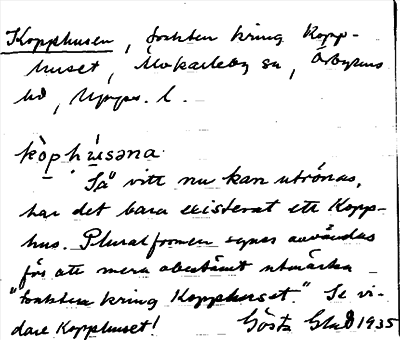 Kopphusen, trakten kring Kopp-
huset, Älvkarleby sn, Örbyhus
hd, Upps. l.
kòp hú̀sәna
Så vitt nu kan utrönas,
har det bara existerat ett Kopp-
hus. Pluralformen synes användas
för att mera obestämt utmärka
"trakten kring Kopphuset." Se vi-
dare Kopphuset!
Gösta Glad 1935